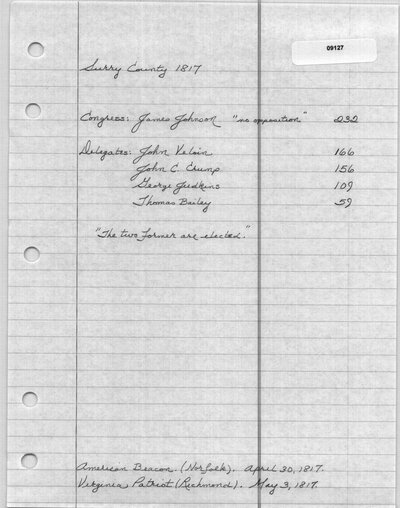 09127
Surry County 1817
Congress: James Johnson "no opposition" 232
Delegates: John Velvin 166
John C. Crump 156
George Judkins 109
Thomas Bailey 59
"The two former are elected."
American Beacon. (Norfolk). April 30, 1817.
Virginia Patriot (Richmond). May 3, 1817.